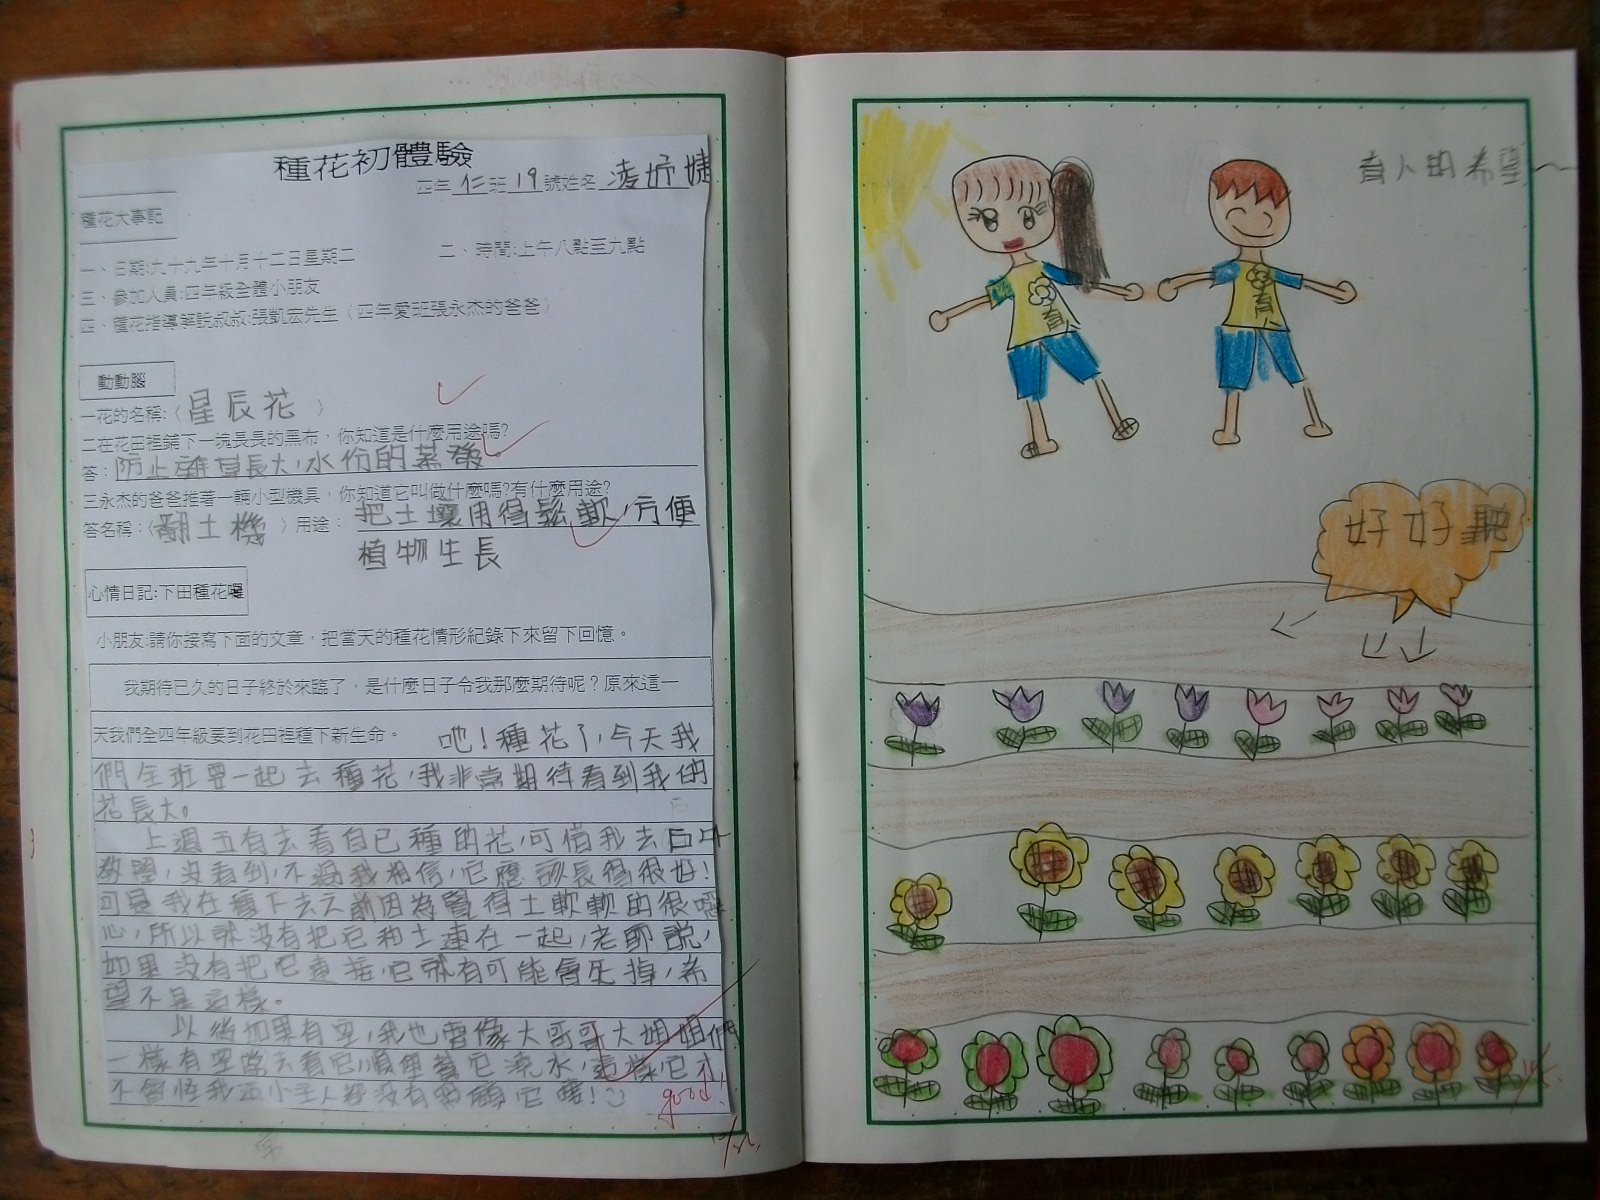 種花初體驗
四年仁班19號姓名凌妤婕
種花大事記
一、日期:九十九年十月十二日星期二 二、時間:上午八點至九點
三、參加人員:四年級全體小朋友
四、種花指導解說叔叔:張凱宏先生（四年愛班張永杰的爸爸）
動動腦
一花的名稱:（星辰花）
二在花田裡鋪下一塊長長的黑布，你知道是什麼用途嗎?
答：防止雜草長大,水份的蒸發。
三永杰的爸爸推著一輛小型機具，你知道它叫做什麼嗎?有什麼用途?
答名稱：（翻土機）用途：把土壤用得鬆軟,方便
植物生長
心情日記:下田種花囉
小朋友:請你接寫下面的文章，把當天的種花情形紀錄下來留下回憶。
我期待已久的日子終於來臨了，是什麼日子令我那麼期待呢？原來這一
天我們全四年級要到花田裡種下新生命。 吔!種花了,今天我
們全班要一起去種花,我非常期待看到我的
花長大。
上週五有去看自己種的花,可惜我去戶外
教學,沒看到,不過我相信,它應該長得很好!
可是我在種下去之前因為覺得土軟軟的很噁
心,所以就沒有把它和土連在一起,老師說,
如果沒有把它連接,它就有可能會死掉,希
望不是這樣。
以後如果有空,我也會像大哥哥大姐姐們
一樣有空當去看它,順便幫它澆水,這樣,它才
不會怪我這小主人都沒有照顧它喔!
good!
育人的希望~
育人
育人
好好聽